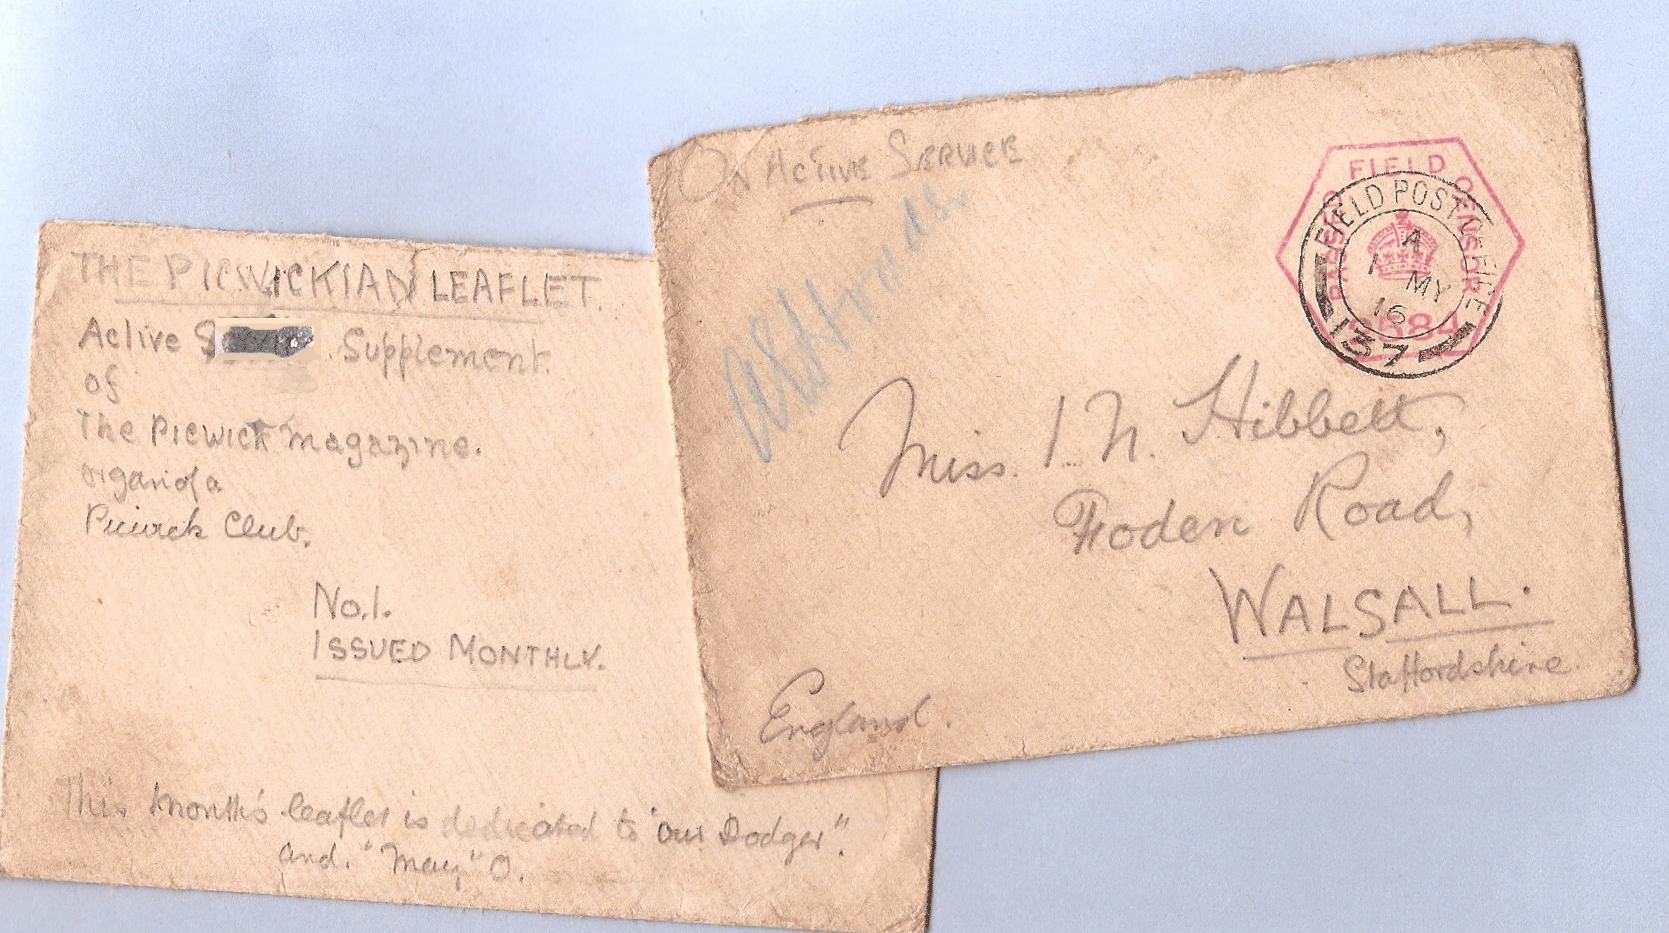 THE PICWICKIAN LEAFLET.
Active Supplement.
of
The Picwick magazine.
organ of a
Picwick Club.
No.1.
ISSUED MONTHLY.
This month's leaflet is dedicated to "our Dodger".
and. "May" O.
ON ACTIVE SERVICE
PASSED FIELD CENSOR
FIELD POST OFFICE
A
1 MY
16
137
Miss. I. N. Hibbett,
Foden Road,
WALSALL.
Staffordshire.
England.